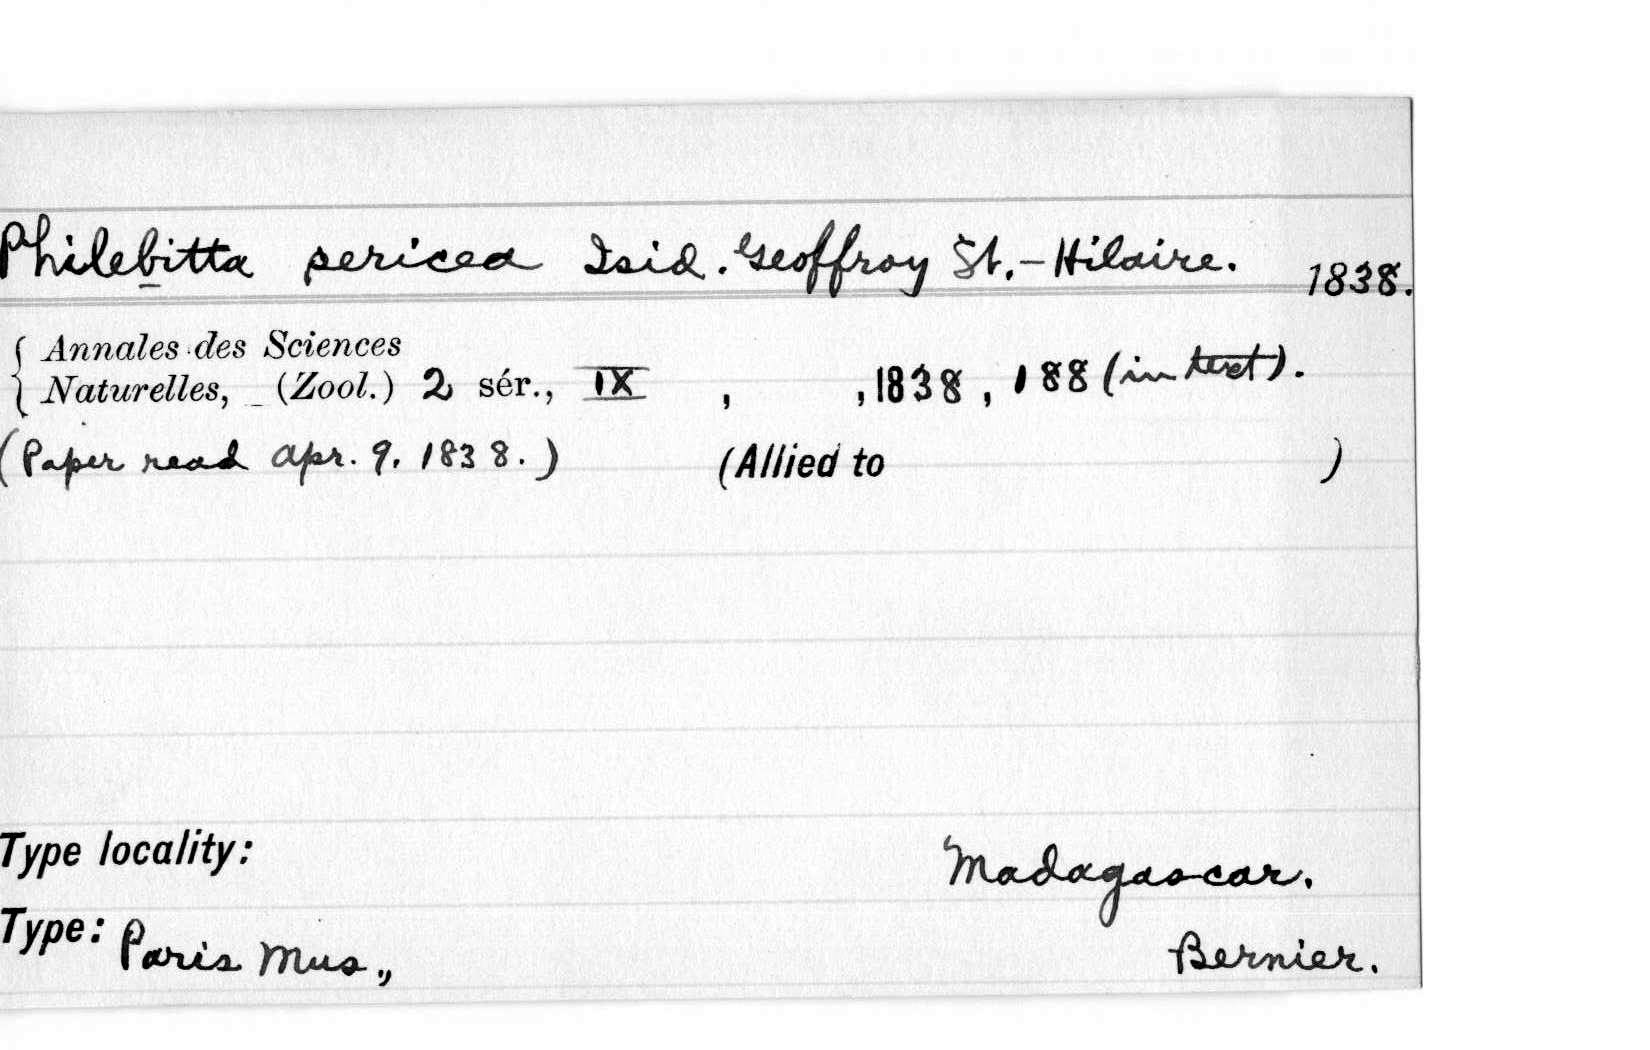 Philebitta sericea Isid. Geoffroy St.-Hilaire. 1838.
{ Annales des Sciences
Naturelles, _ (Zool.) 2 sér., IX , , 1838, 188 (in text).
(Paper read Apr. 9, 1838.) (Allied to )
Type locality: Madagascar.
Type: Paris Mus., Bernier.